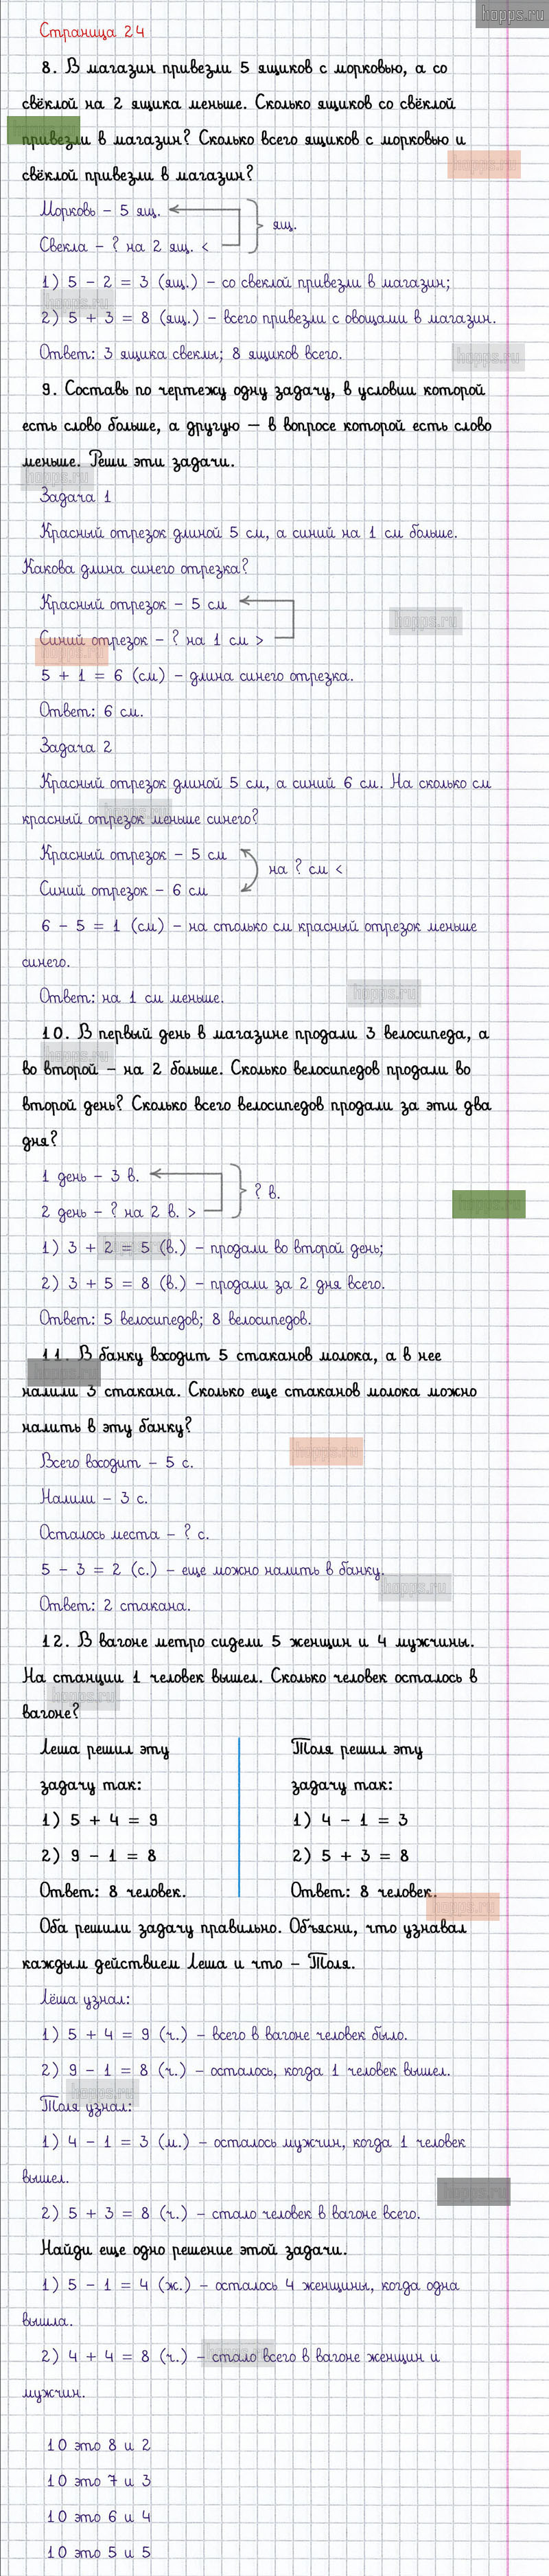 hopps.ru
Страница 24
8. В магазин привезли 5 ящиков с морковью, а со
свёклой на 2 ящика меньше. Сколько ящиков со свёклой
привезли в магазин? Сколько всего ящиков с морковью и
hopps.ru
свёклой привезли в магазин?
Морковь – 5 ящ.
ящ.
Свекла – ? на 2 ящ. <
1) 5 – 2 = 3 (ящ.) – со свеклой привезли в магазин;
hopps.ru
2) 5 + 3 = 8 (ящ.) – всего привезли с овощами в магазин.
Ответ: 3 ящика свеклы; 8 ящиков всего.
hopps.ru
9. Составь по чертежу одну задачу, в условии которой
есть слово больше, а другую – в вопросе которой есть слово
меньше. Реши эти задачи.
hopps.ru
Задача 1
Красный отрезок длиной 5 см, а синий на 1 см больше.
Какова длина синего отрезка?
Красный отрезок – 5 см
hopps.ru
Синий отрезок – ? на 1 см >
5 + 1 = 6 (см) – длина синего отрезка.
Ответ: 6 см.
Задача 2
Красный отрезок длиной 5 см, а синий 6 см. На сколько см
hopps.ru
красный отрезок меньше синего?
Красный отрезок – 5 см
на ? см <
Синий отрезок – 6 см
6 – 5 = 1 (см) – на столько см красный отрезок меньше
синего.
Ответ: на 1 см меньше.
hopps.ru
10. В первый день в магазине продали 3 велосипеда, а
hopps.ru
во второй – на 2 больше. Сколько велосипедов продали во
второй день? Сколько всего велосипедов продали за эти два
дня?
1 день – 3 в.
? в.
2 день – ? на 2 в. >
hopps.ru
1) 3 + 2 = 5 (в.) – продали во второй день;
2) 3 + 5 = 8 (в.) – продали за 2 дня всего.
Ответ: 5 велосипедов; 8 велосипедов.
11. В банку входит 5 стаканов молока, а в нее
налили 3 стакана. Сколько еще стаканов молока можно
налить в эту банку?
hopps.ru
Всего входит – 5 с.
Налили – 3 с.
Осталось места – ? с.
5 – 3 = 2 (с.) – еще можно налить в банку.
hopps.ru
Ответ: 2 стакана.
12. В вагоне метро сидели 5 женщин и 4 мужчины.
На станции 1 человек вышел. Сколько человек осталось в
hopps.ru
вагоне?
Леша решил эту
задачу так:
1) 5 + 4 = 9
2) 9 – 1 = 8
Ответ: 8 человек.
Толя решил эту
задачу так:
1) 4 – 1 = 3
2) 5 + 3 = 8
Ответ: 8 человек.
hopps.ru
Оба решили задачу правильно. Объясни, что узнавал
каждым действием Леша и что – Толя.
Лёша узнал:
1) 5 + 4 = 9 (ч.) – всего в вагоне человек было.
2) 9 – 1 = 8 (ч.) – осталось, когда 1 человек вышел.
hopps.ru
Толя узнал:
1) 4 – 1 = 3 (м.) – осталось мужчин, когда 1 человек
вышел.
hopps.ru
2) 5 + 3 = 8 (ч.) – стало человек в вагоне всего.
Найди еще одно решение этой задачи.
1) 5 – 1 = 4 (ж.) – осталось 4 женщины, когда одна
вышла.
hopps.ru
2) 4 + 4 = 8 (ч.) – стало всего в вагоне женщин и
мужчин.
10 это 8 и 2
10 это 7 и 3
10 это 6 и 4
10 это 5 и 5